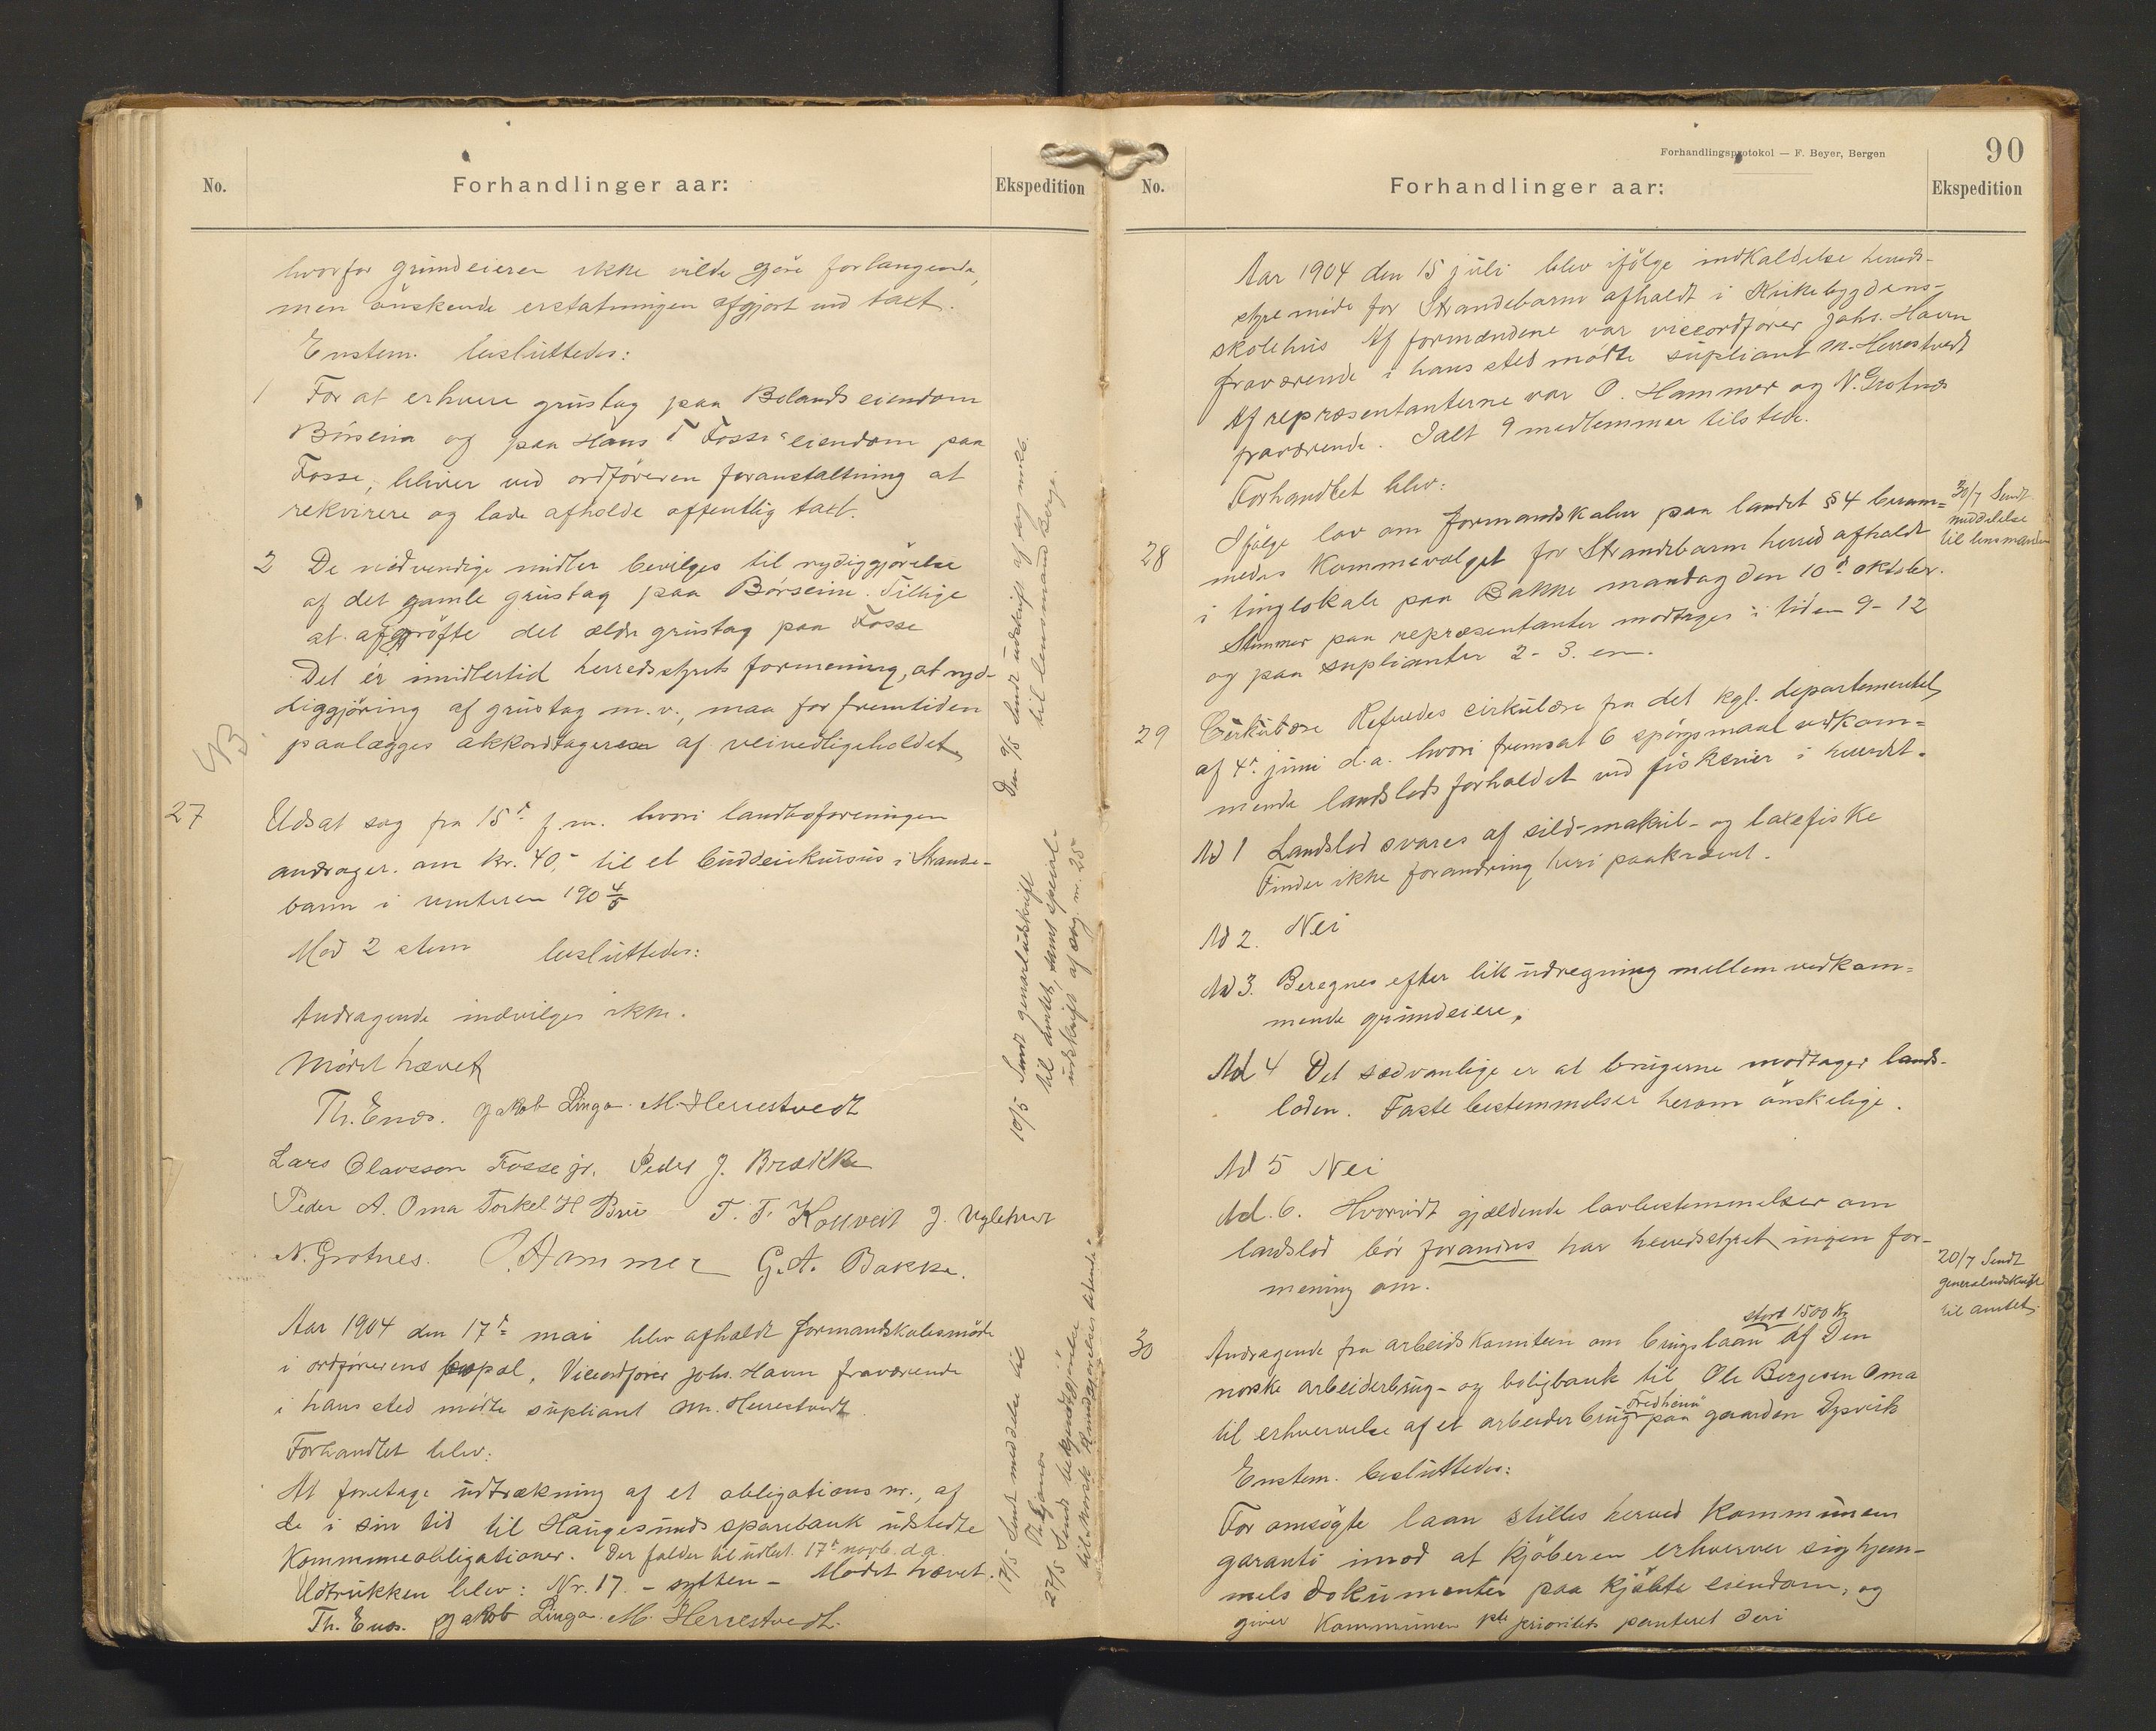 No.
Forhandlinger aar:
Ekspedition
hvorfor grundeieren ikke vilde gjøre forlangende,
men ønskende erstatningen afgjort ved taxt.
Enstem. besluttedes:
1 For at erhverve grustag paa Bolands eiendom
Børsein og paa Hans T Fosse's eiendom paa
Fosse, bliver ved ordføreren foranstaltning at
rekvirere og lade afholde offentlig taxt.
2 De nødvendige midler bevilges til rydiggjørelse
af det gamle grustag paa Børseim. Tillige
at afgrøfte det ældre grustag paa Fosse
Det er imidlertid herredsstyrets formening, at ryd-
diggjøring af grustag m.v., maa for fremtiden
paalægges akkordtageren af veivedligeholdet,
NB.
27 Udsat sag fra 15de f.m. hvori landboforeningen
andrager om kr. 40,- til et budeiekursus i Strande-
barm i vinteren 190 4/5
Mod 2 stem besluttedes:
Andragende indvilges ikke.
Mødet hævet
Th. Enes. Jakob Linga. M. Herrestvedt
Lars Olavsson Fosse jr. Peder J. Brække
Peder A. Oma Torkel H Bru T. T. Kollveit J. Ugletveit
N. Grotnes. O. Hammer G. A. Bakke.
Aar 1904 den 17de mai blev afholdt formandskabsmøde
i ordførerens bopæl. Viceordfører Johs. Havn fraværende
i hans sted mødte supliant M. Herrestvedt
Forhandlet blev:
At foretage udtrækning af et obligations nr., af
de i sin tid til Haugesunds sparebank udstedte
Kommuneobligationer. Der falder til udbet. 17de novb. d.a.
Udtrukken blev: Nr. 17. - sytten - Mødet hævet.
Th. Enes. Jakob Linga. M. Herrestvedt.
Den 9/5 Sendt udskrift af sag no 26.
til lensmand Berge.
10/5 Sendt generaludskrift
til amtet, samt special-
udskrift af sag nr. 25
17/5 Sendt meddelse til
27/5 Sendt bekjendtgjørelse
til Norsk Kundgjørelsestidende
Forhandlingsprotokol — F. Beyer, Bergen
90
No.
Forhandlinger aar:
Ekspedition
Aar 1904 den 15 juli blev ifølge indkaldelse herreds-
styremøde for Strandebarm afholdt i Kirkebygdens-
skolehus Af formændene var viceordfører Johs. Havn
fraværende i hans sted mødte supliant M. Herrestvedt
Af repræsentanterne var O. Hammer og N. Grotnes
fraværende. Ialt 9 medlemmer tilstede.
Forhandlet blev:
28 Ifølge lov om formandskaber paa landet § 4 beram-
medes Kommevalget for Strandebarm herred afholdt
i tinglokale paa Bakke mandag den 10de oktober.
Stemmer paa repræsentanter modtages i tiden 9-12
og paa suplianter 2-3. em.
30/7 Sendt
meddelelse
til lensmanden
29 Cirkulære Refereredes cirkulære fra det kgl. departementet
af 4de juni d.a. hvori fremsat 6 spørgsmaal vedkom-
mende landslodsforholdet ved fiskerier i herredet.
Ad 1 Landslod svares af sild-makril- og laxefiske
Finder ikke forandring heri paakrævet.
Ad 2. Nei
Ad 3. Beregnes efter lik udregning mellem vedkom-
mende grundeiere.
Ad 4 Det sædvanlige er at brugerne modtager lands-
loden. Faste bestemmelser herom ønskelige.
Ad 5 Nei
Ad. 6. Hvorvidt gjældende lovbestemmelser om
landslod bør forandres har herredsstyret ingen for-
mening om.
20/7 Sendt
generaludskrift
til amtet.
stort 1500 Kr
30 Andragende fra arbeidskomiteen om brugslaan af Den
norske arbeiderbrug- og boligbank til Ole Bergesen Oma
til erhvervelse af et arbeiderbrug "Fredheim" paa gaarden Dysvik
Enstem. besluttedes:
For omsøgte laan stilles herved Kommunens
garanti imod at kjøberen erhverver sig hjem-
mels dokumenter paa kjøbte eiendom, og
giver Kommunen prioritets panteret deri